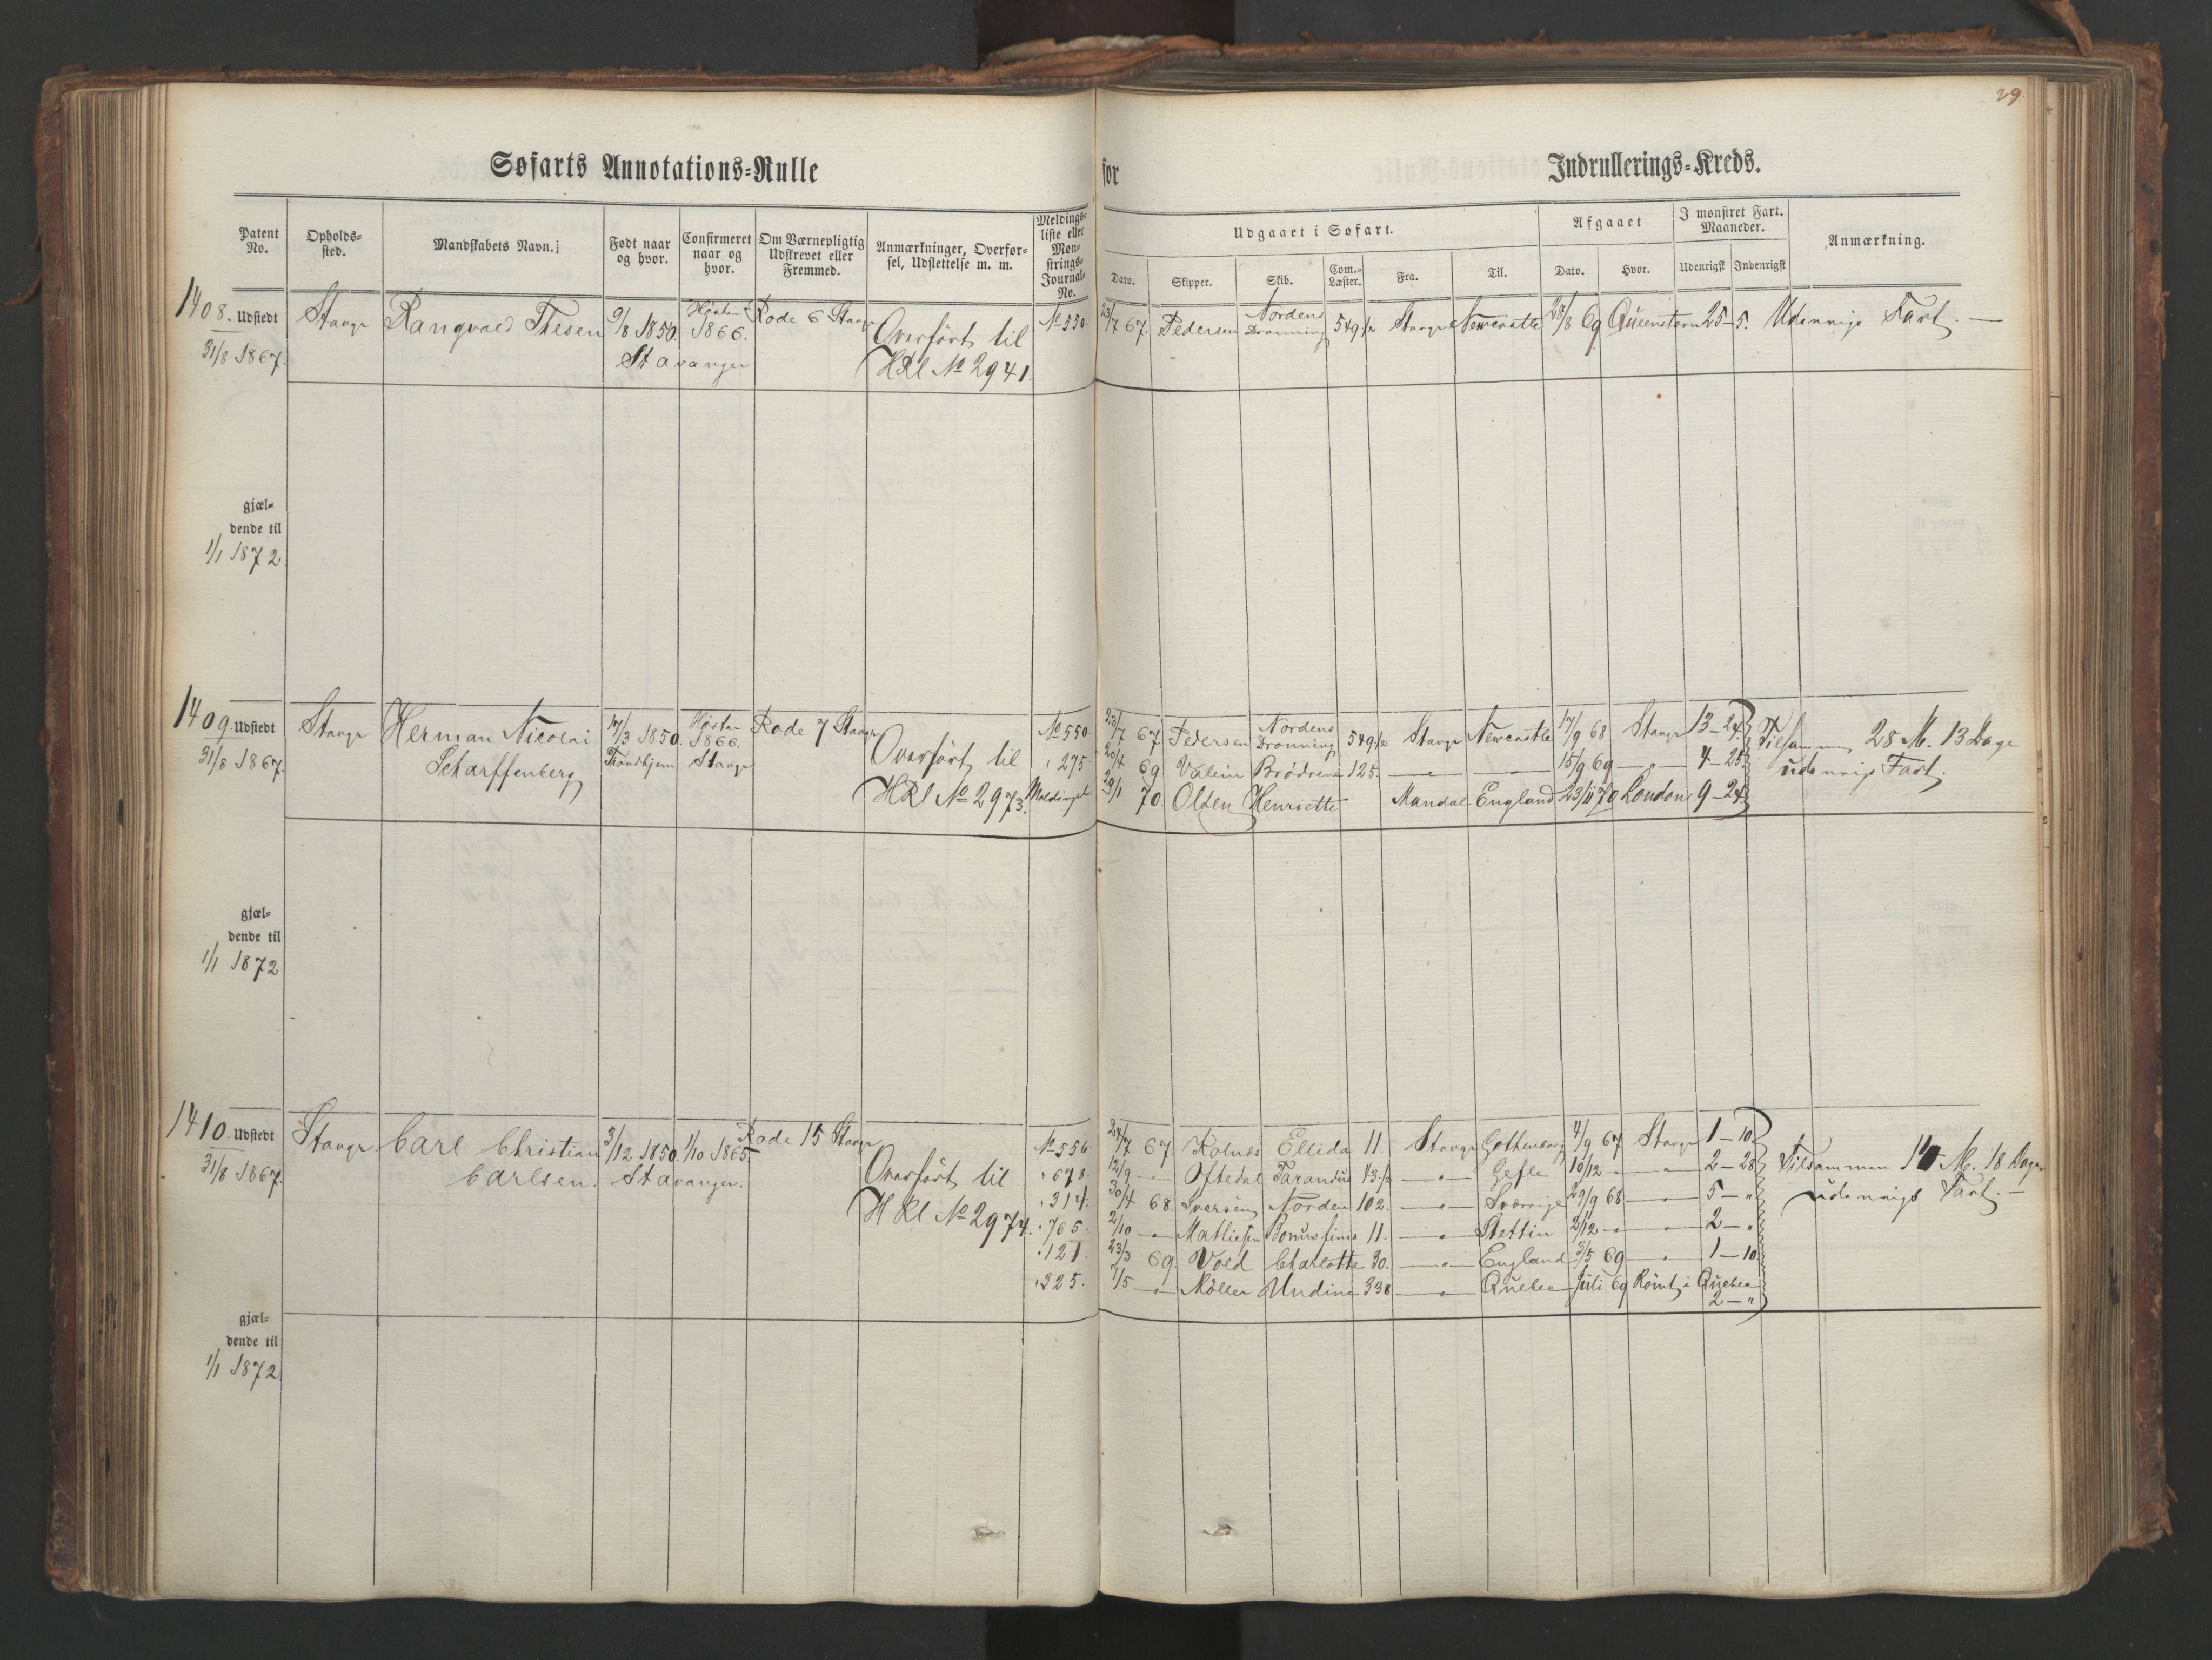 29.
Søfarts Annotations-Rulle for Indrullerings-Kreds.
Patent No.
Opholds-sted.
Mandskabets Navn.
Født naar og hvor.
Confirmeret naar og hvor.
Om Værnepligtig Udskrevet eller Fremmed.
Anmærkninger, Overførsel, Udslettelse m. m.
Meldings-liste eller Mønstrings-Journal-No.
Udgaaet i Søfart.
Dato. Skipper. Skib. Com.-Læster. Fra. Til.
Afgaaet
Dato. Hvor.
I mønstret Fart. Maaneder.
Udenrigsk Indenrigsk
Anmærkning.
1408. Udstedt 31/8 1867.
Stavgr
Rangvald Thesen
9/8 1850. Stavanger
Høsten 1866.
Rode 6 Stavgr
Overført til
HRl No 2941.
No 550
23/7 67. Pedersen Nordens Dronning 549 1/2 Stavgr Newcastle 28/8 69 Queenstown 25-5. Udenrigs Fart. —
gjæl-
dende til
1/1 1872
1409. Udstedt 31/8 1867.
Stavgr
Herman Nicolai
Scharffenberg
17/3 1850. Trondhjem
Høsten 1866. Stavgr
Rode 7 Stavgr
Overført til
HRl No 2973.
No 550 23/7 67. Pedersen Nordens Dronning 549 1/2 Stavgr Newcastle 17/9 68 Stavgr 13-24.
" 275 20/4 69. Valein Brødrene 125. — " — 15/9 69 — " — 4-25.
29/1 70. Olsen Henriette Mandal England 23/11 70 London 9-24.
Tilsammen 28 M. 13 Dage
udenrigs Fart.
gjæl-
dende til
1/1 1872
1410. Udstedt 31/8 1867.
Stavgr
Carl Christian
Carlsen.
3/12 1850. Stavanger.
1/10 1865.
Rode 15 Stavgr
Overført til
HRl No 2974.
No 556 24/7 67. Kolnes Ellida 11. Stavgr Gothenborg 4/9 67 Stavgr 1-10.
" 678. 12/9 — " Oftedal Tarandus 43 1/2 — " — Gefle 10/12 — " " 2-28
" 314. 30/4 68 Iversen Norden 102. — " — Sverrige 29/9 68 — " — 5 - "
" 765. 2/10 — " Mathiesen 11. — " — Stettin 2/12 — " — 2 - "
" 121. 23/3 69. Vold Charlotte 30. — " — England 3/5 69 — " — 1-10
" 325. 7/5 — " Møller Undine 338 — " — Quebec Juli 69 Rømt i Quebec
2 - "
Tilsammen M. 18 Dage
udenrigs Fart. —
gjæl-
dende til
1/1 1872